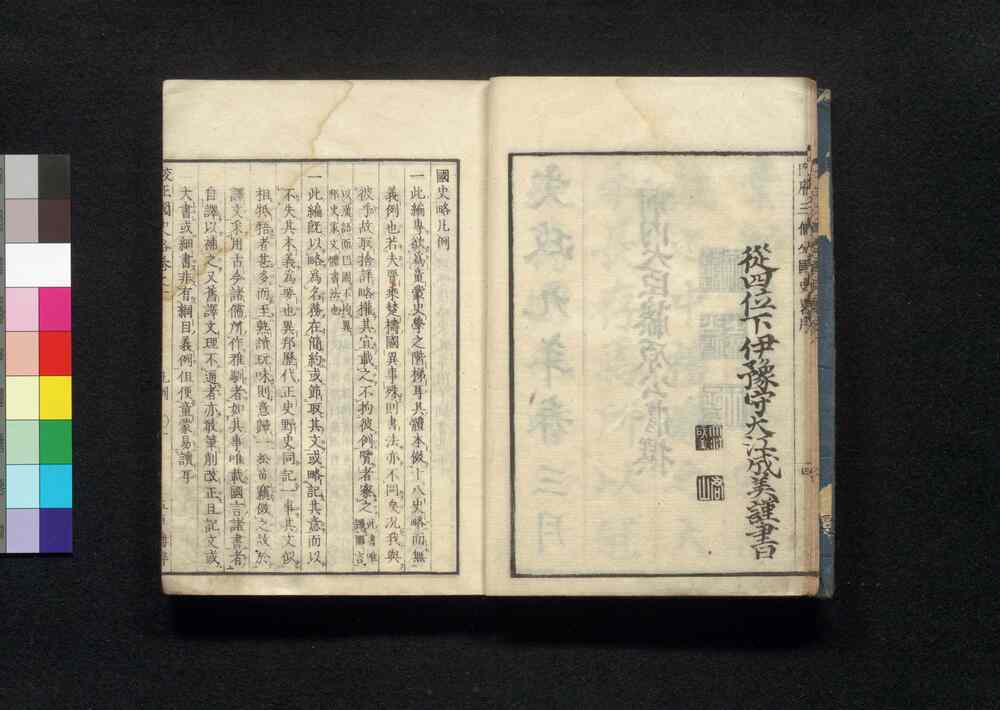 從四位下伊豫守大江成美謹書
國史略凡例
一此編專欲爲童蒙史學之階梯耳其體本倣十八史略而無
義例也若夫晉乘楚檮國異事殊則書法亦不同矣況我與
彼乎故取捨詳略擅其宜載之不拘彼例覽者察之
此書唯
譯國言
以漢語而已固不拘異
邦史家文體書法也
一此編既以略爲名務在簡約或節取其文或略記其意而以
不失其本義為要也異邦歷代正史野史同記一事其文似
相牴牾者甚多而至熟讀玩味則意歸一於苗竊倣之故於
譯文采用古今諸儒所作雅馴者如其事唯載國言諸書者
自譯以補之又舊譯文理不通者亦敢筆削改正且記文或
大書或細書非有綱目義例但便童蒙易讀耳